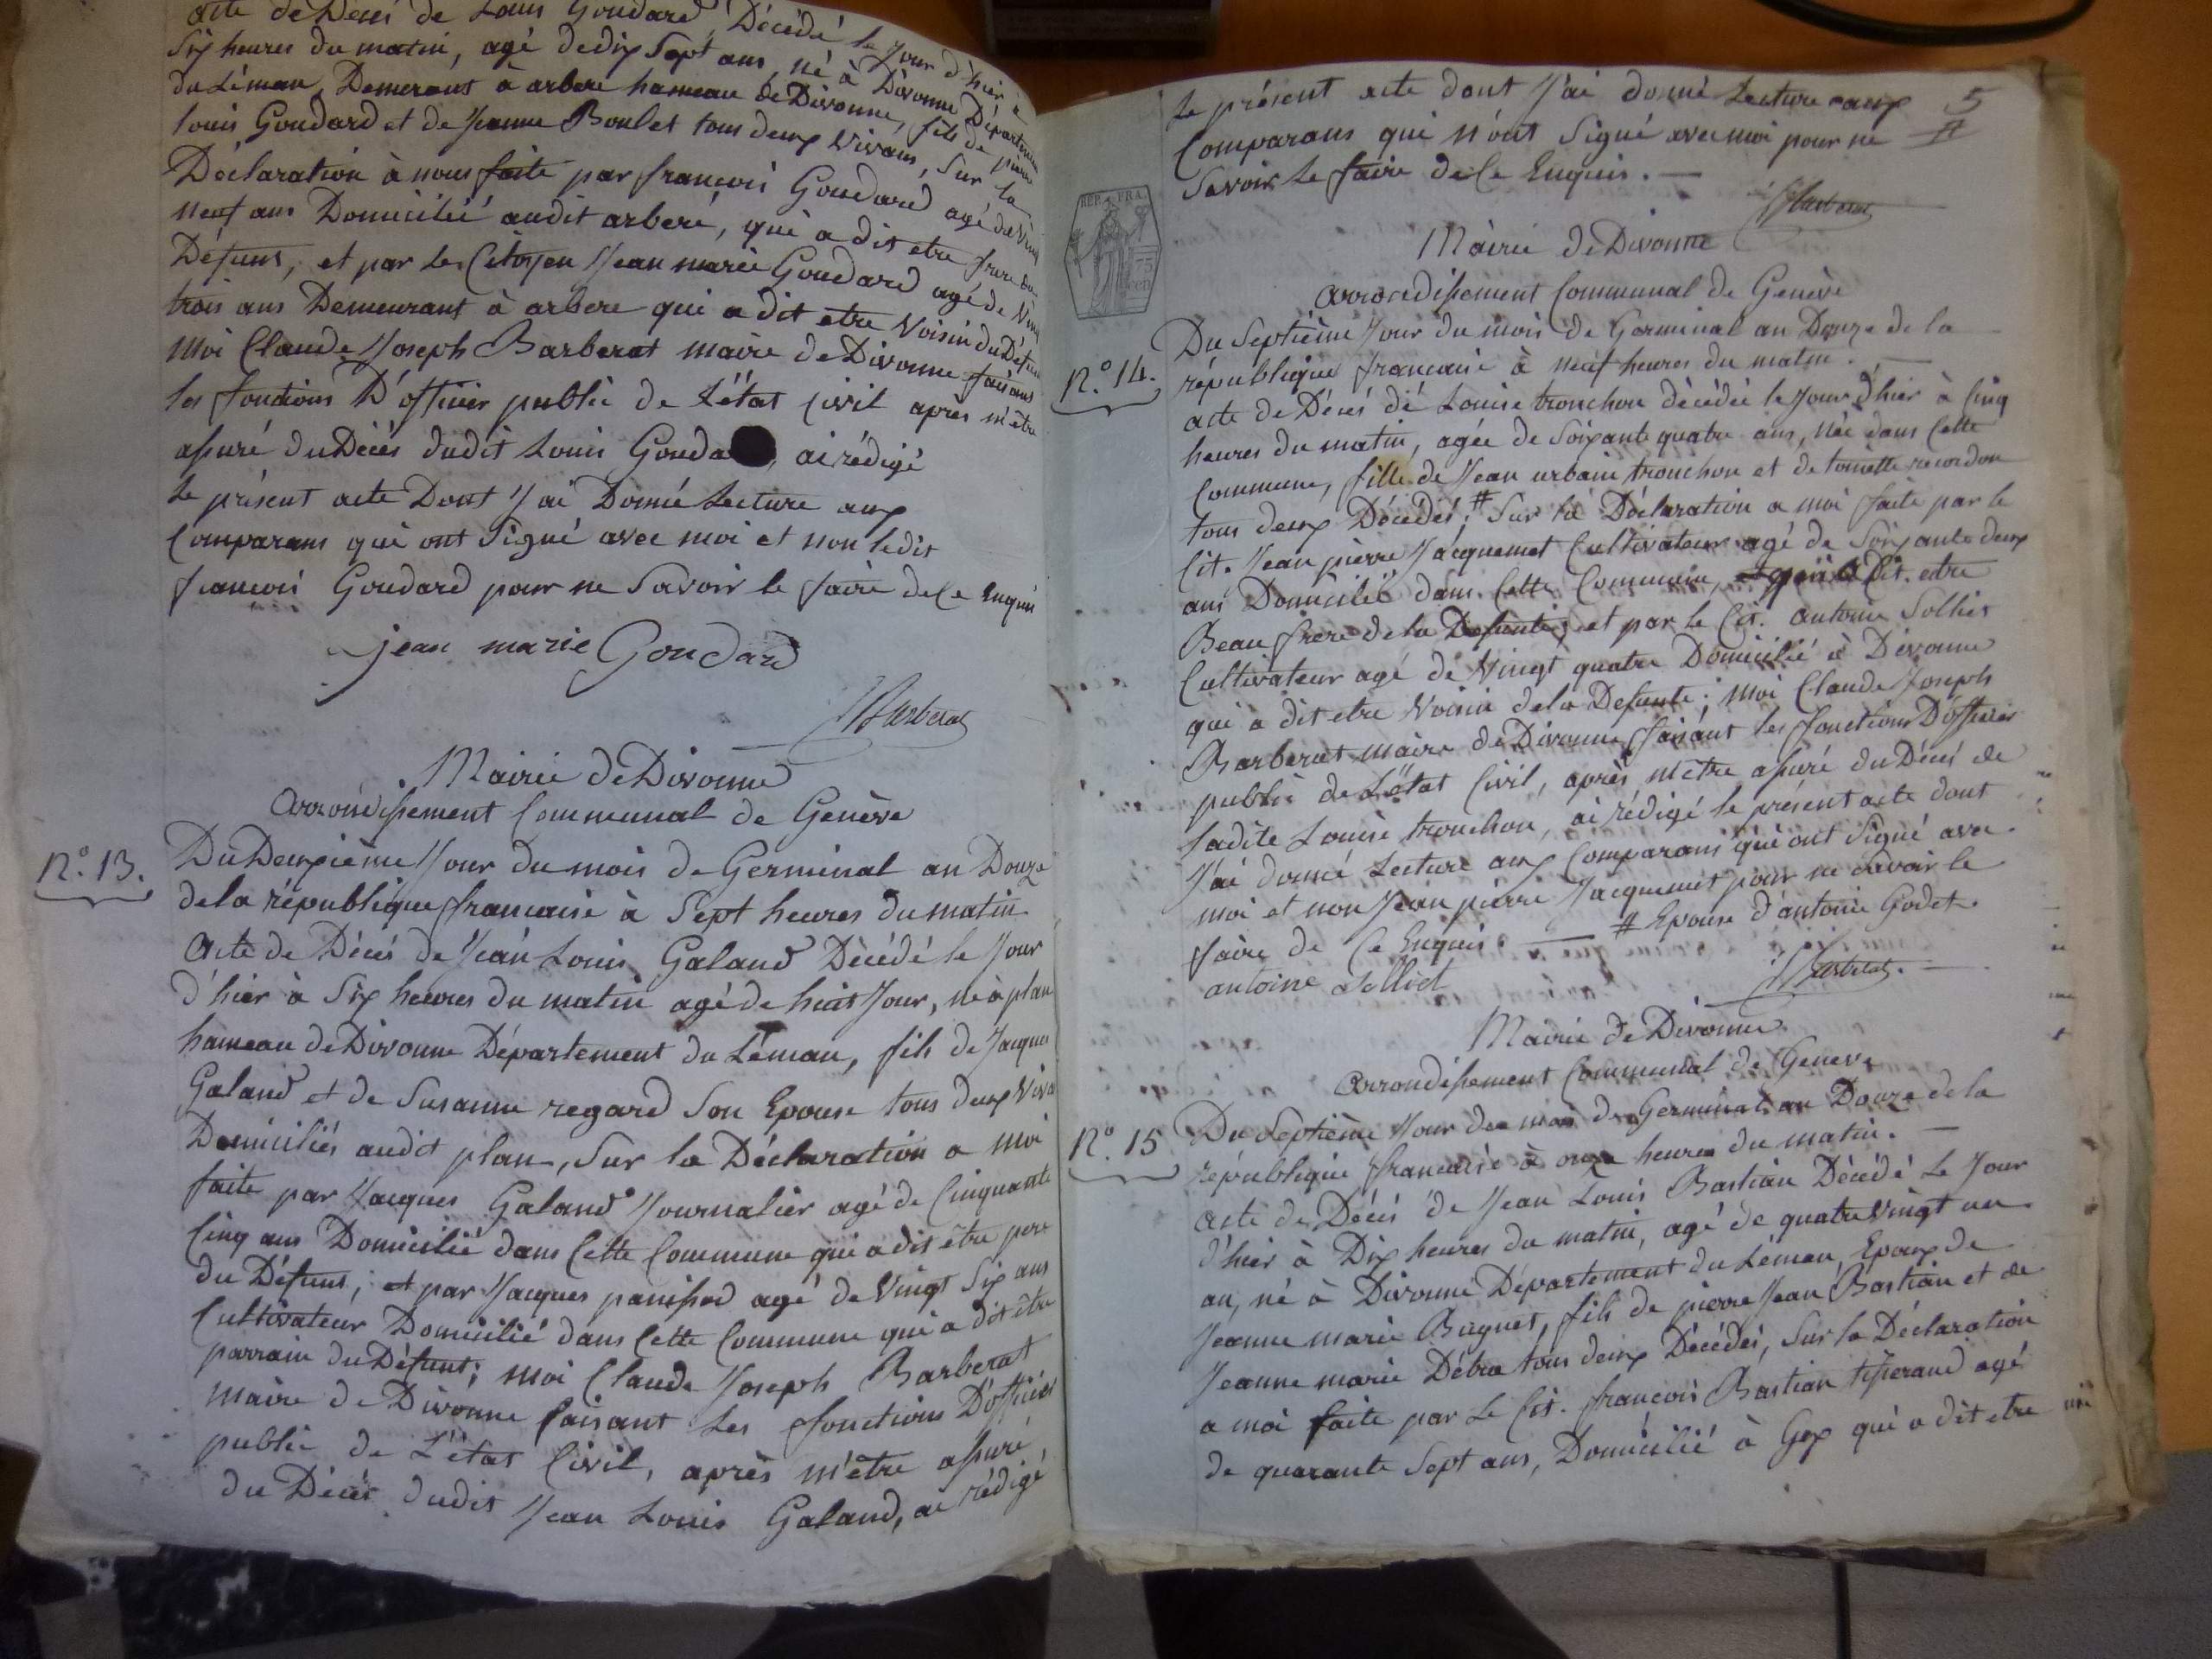 acte de Décès de Louis Goudard, Décédé le jour d'hier à
Six heures du matin, agé de dix Sept ans, né à Divonne Département
du Léman, Demeurant à arbere hameau de Divonne, fils de pierre
louis Goudard et de Jeanne Boulet tous deux Vivans, Sur la
Déclaration à nous faite par francois Goudard agé de Vingt
neuf ans Domicilié audit arbere, qui a dit etre frere du
Défunt, et par le Citoyen Jean marie Goudard agé de Vingt
trois ans Demeurant à arbere qui a dit etre Voisin du Défunt
Moi Claude Joseph Barberat maire de Divonne faisant
les fonctions D'officier public de L'état Civil après m'être
assuré du Décès dudit Louis Gouda , ai rédigé
Le présent acte Dont J'ai Donné Lecture aux
Comparans qui ont Signé avec moi et non ledit
francois Goudard pour ne Savoir le faire de Ce Enquis
jean marie Goudard
Barberat
Mairie de Divonne
Arrondissement Communal de Genève
N.º 13.
Du Deuxième Jour du mois de Germinal an Douze
de la république francaise à Sept heures du matin
Acte de Décès de Jean Louis Galand Décédé le Jour
d'hier à Six heures du matin agé de huit Jour, né à plan
hameau de Divonne Département du Léman, fils de Jacques
Galand et de Susanne regard Son Epouse tous deux Viva
Domiciliés audit plan, Sur la Déclaration a moi
faite par Jacques Galand Journalier agé de Cinquante
Cinq ans Domicilié dans Cette Commune qui a dit être pere
du Défunt; et par Jacques panissod agé de Vingt Six ans
Cultivateur Domicilié dans Cette Commune qui a dit être
parrain du Défunt; moi Claude Joseph Barberat
maire de Divonne faisant les fonctions D'officier
public de L'état Civil, après m'être assuré
du Décès dudit Jean Louis Galand, ai rédigé
5
Le présent acte dont J'ai donné Lecture aux
Comparans qui n'ont Signé avec moi pour ne
Savoir Le faire de Ce Enquis. —
Barberat
REP. FRA.
75
cen
Mairie de Divonne
Arrondissement Communal de Genève
N.º 14.
Du Septième Jour du mois de Germinal an Douze de la
république francaise à neuf heures du matin. —
acte de Décès de Louise tronchon décédée le Jour d'hier à Cinq
heures du matin, agée de Soixante quatre ans, née dans Cette
Commune, fille de Jean urbain tronchon et de toinette recordon
tous deux Décédés; # Sur la Déclaration a moi faite par le
Cit. Jean pierre Jacquemet Cultivateur agé de Soixante deux
ans Domicilié dans Cette Commune, qui a Dit etre
Beau frere de la Defunte; et par le Cit. antoine Solliet
Cultivateur agé de Vingt quatre Domicilié à Divonne
qui a dit etre Voisin de la Defunte; moi Claude Joseph
Barberat maire de Divonne faisant les fonctions D'officier
public de L'état Civil, après m'être assuré du Décès de
Ladite Louise tronchon, ai rédigé le présent acte dont
J'ai donné Lecture aux Comparans qui ont Signé avec
moi et non Jean pierre Jacquemet pour ne Savoir le
faire de Ce Enquis. — # Epouse d'antoine Godet.
antoine Solliet
Barberat. —
Mairie de Divonne
Arrondissement Communal de Geneve
N.º 15
Du Septième Jour du mois de Germinal an Douze de la
république francaise à onze heures du matin. —
Acte de Décès de Jean Louis Bastian Décédé Le Jour
d'hier à Dix heures du matin, agé de quatre Vingt un
an, né à Divonne Département du Léman, Epoux de
Jeanne marie Bugnet, fils de pierre Jean Bastian et de
Jeanne marie Débra tous deux Décédés, Sur la Déclaration
a moi faite par Le Cit. francois Bastian tisserand agé
de quarante Sept ans, Domicilié à Gex qui a dit etre